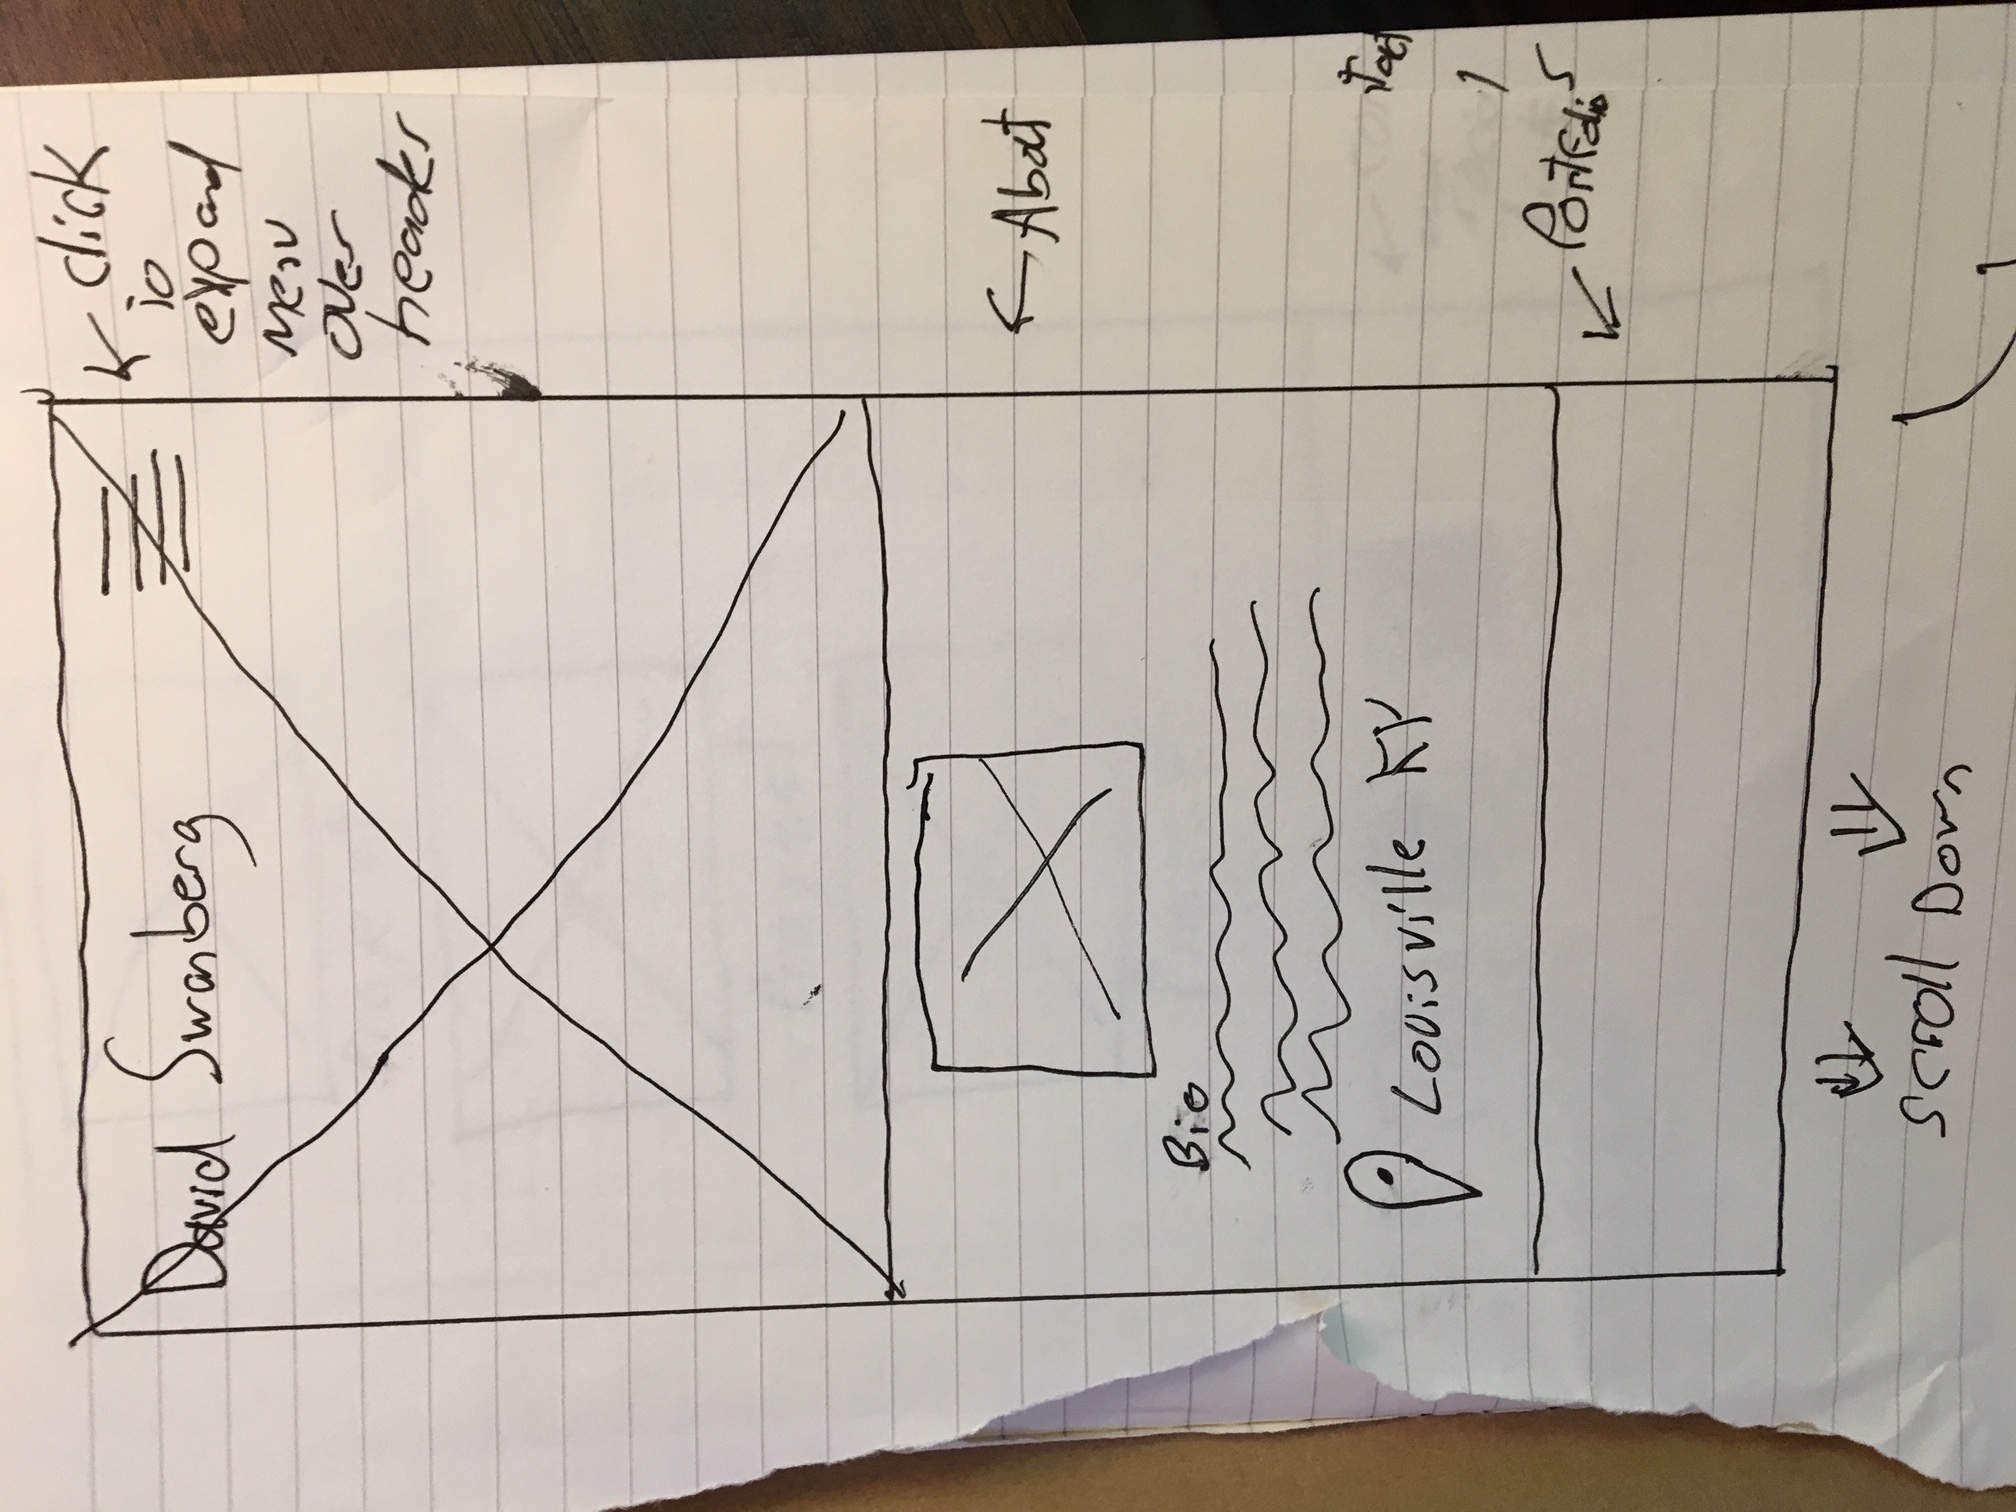 David Swanberg
click
to
expand
menu
over
header
About
Bio
Louisville KY
Portfolio
Scroll Down